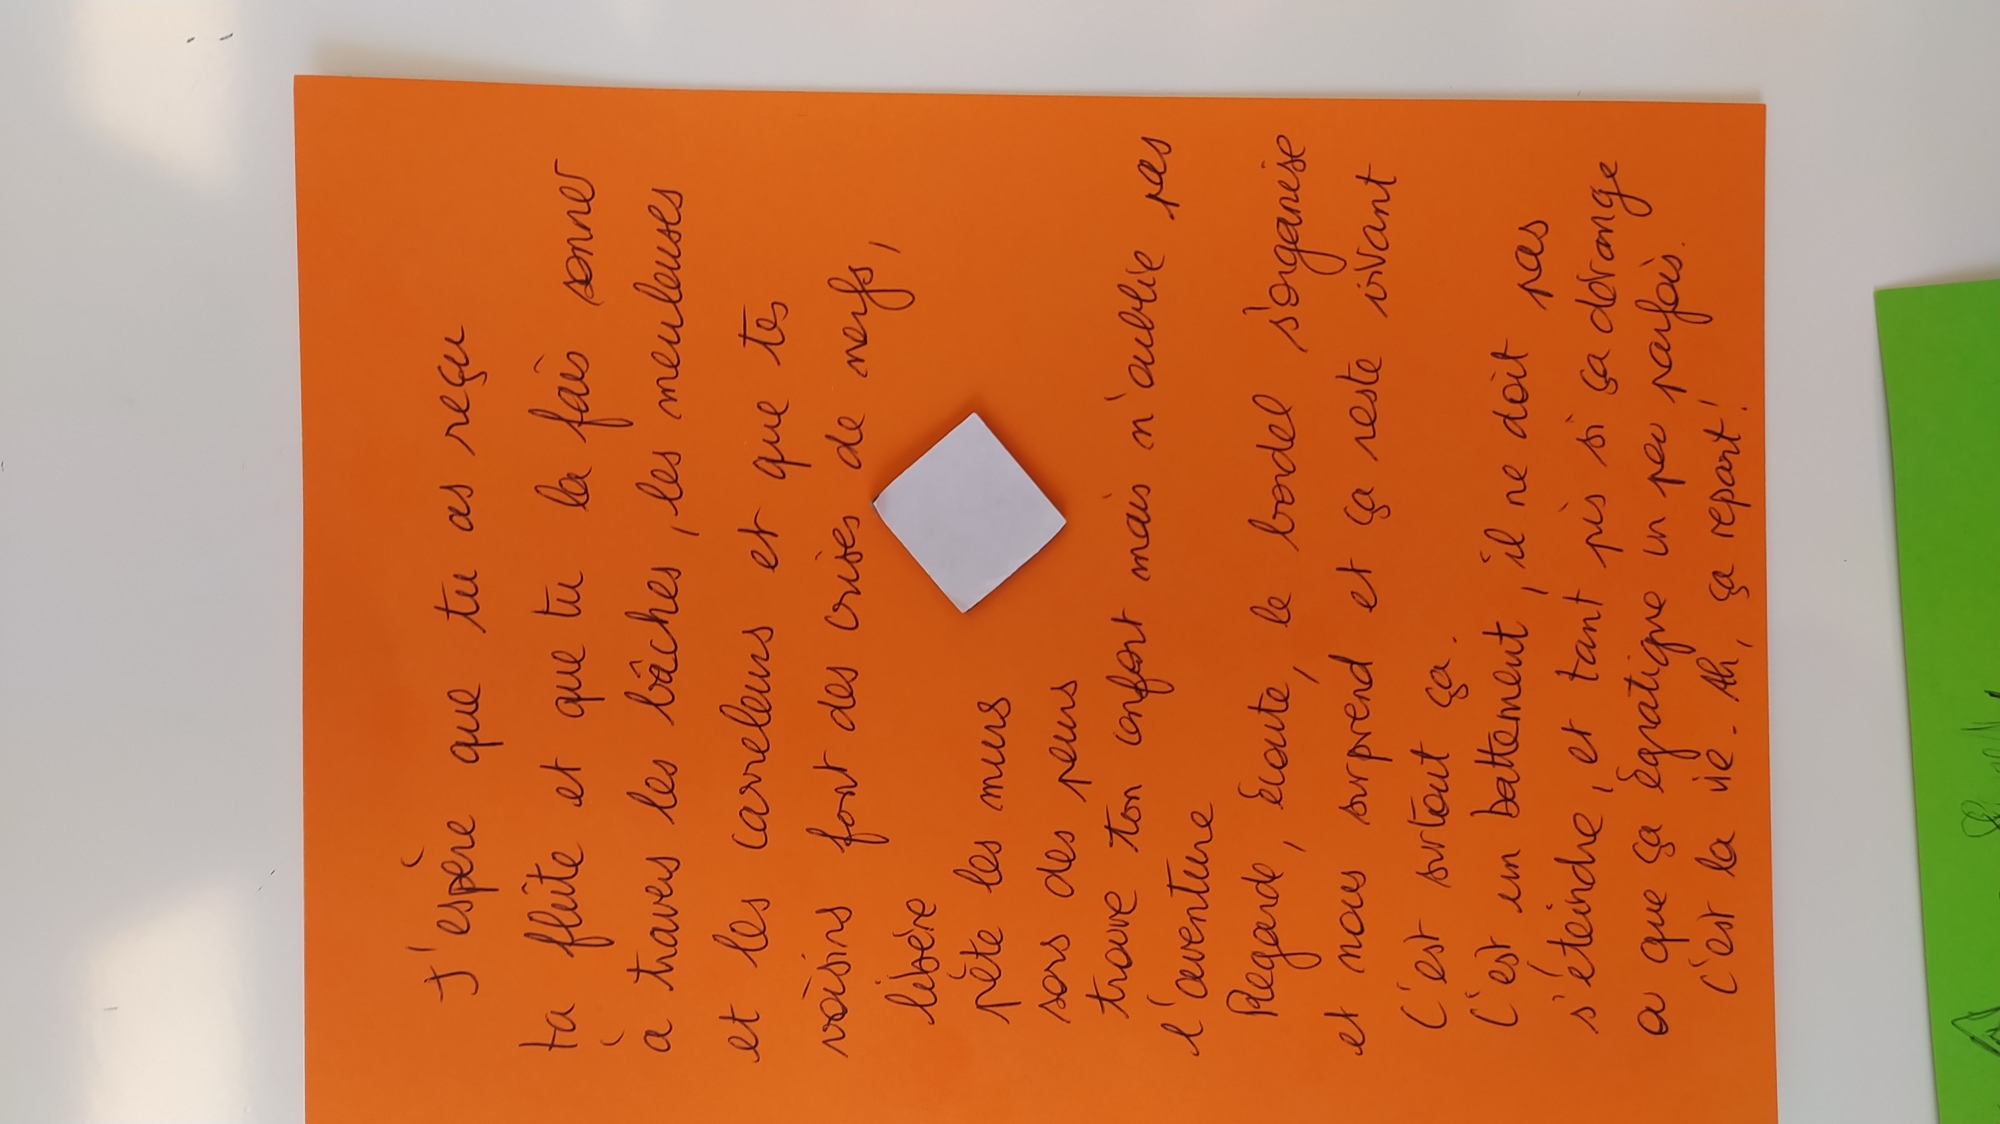 J'espère que tu as reçu
ta flûte et que tu la fais sonner
à travers les bâches, les meuleuses
et les carreleurs et que tes
voisins font des crises de nerfs,
libère
pète les murs
sors des peurs
trouve ton confort mais n'oublie pas
l'aventure
Regarde, écoute, le bordel s'organise
et nous surprend et ça reste vivant
C'est surtout ça.
C'est un battement, il ne doit pas
s'éteindre, et tant pis si ça dérange
ou que ça égratigne un peu parfois.
C'est la vie. Ah, ça repart!